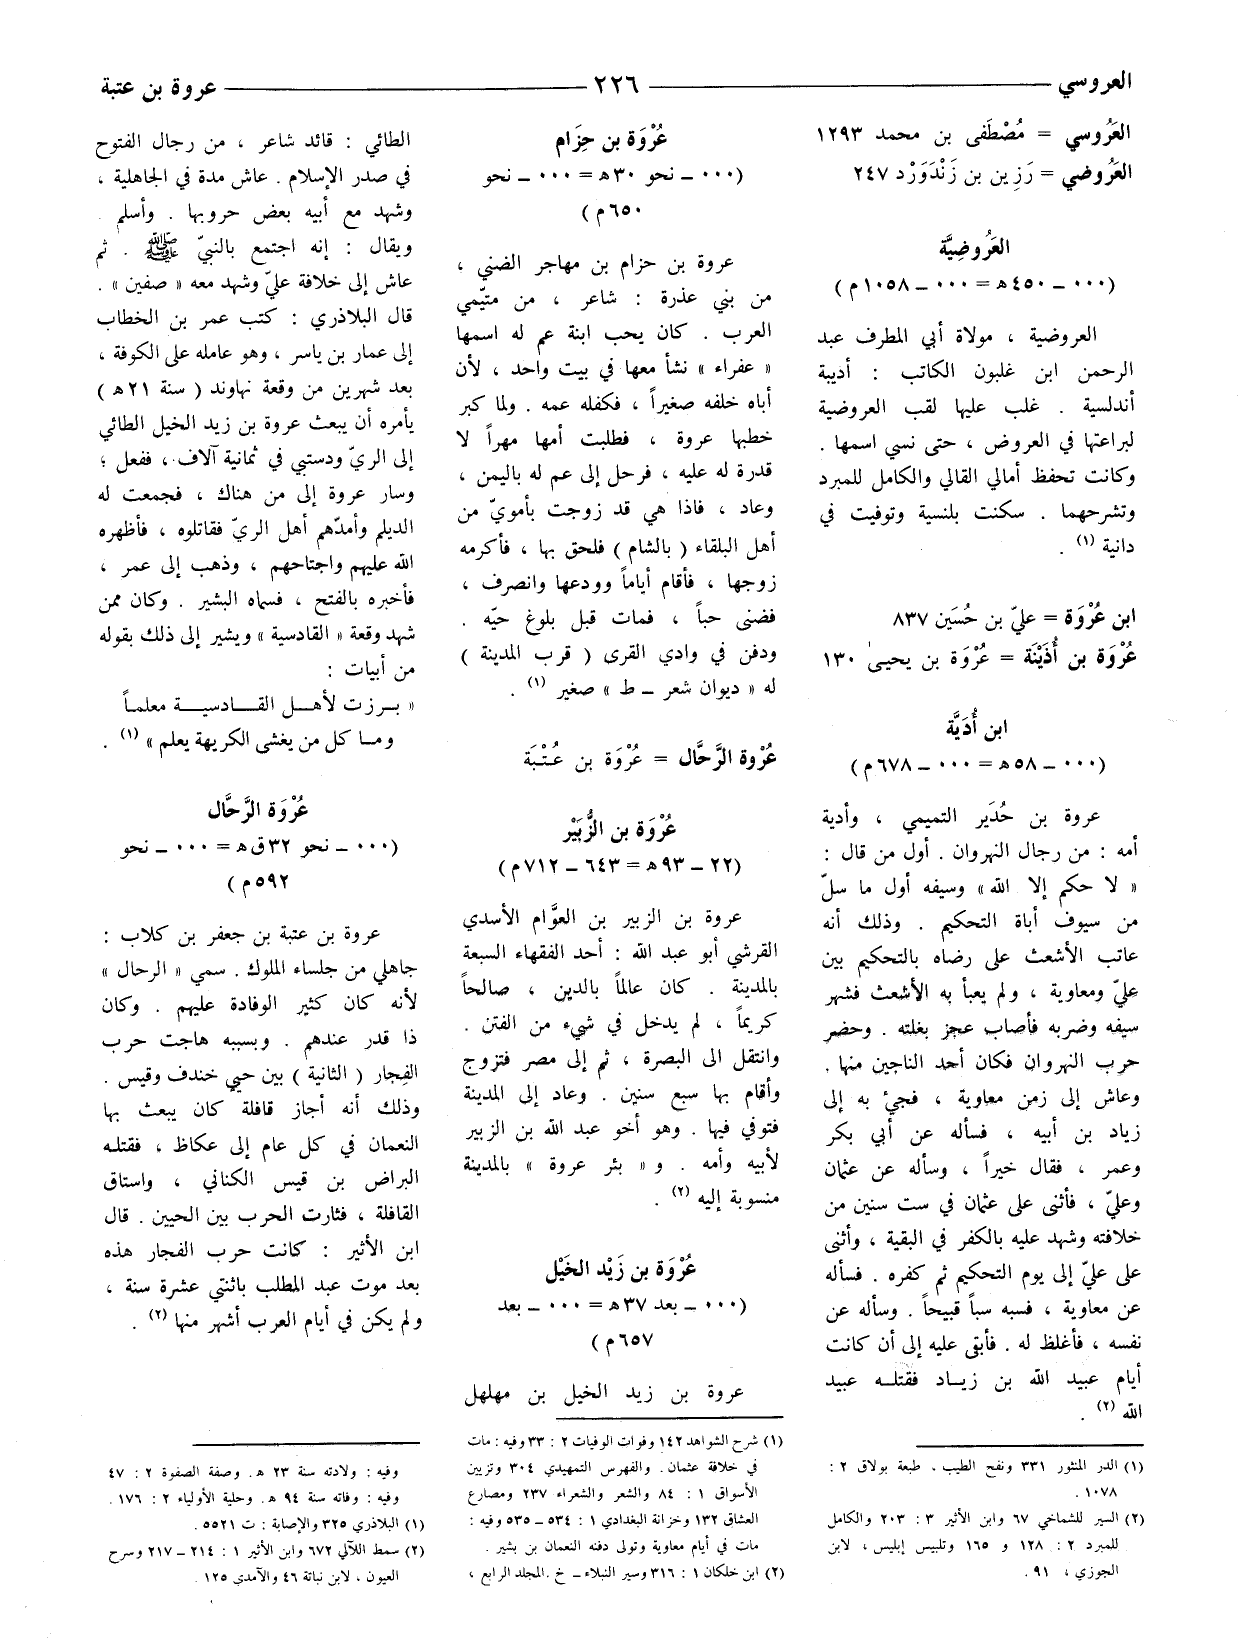 العروسي ــــ ٢٢٦ ــــ عروة بن عتبة
العَرُوسي = مُصْطَفى بن محمد ١٢٩٣
العَرُوضي = رَزِين بن زَنْدَوَرْد ٢٤٧
العَرُوضِيَّة
(٠٠٠ ــ ٤٥٠ هـ = ٠٠٠ ــ ١٠٥٨ م)
العروضية ، مولاة أبي المطرف عبد
الرحمن ابن غلبون الكاتب : أديبة
أندلسية . غلب عليها لقب العروضية
لبراعتها في العروض ، حتى نسي اسمها .
وكانت تحفظ أمالي القالي والكامل للمبرد
وتشرحهما . سكنت بلنسية وتوفيت في
دانية (١) .
ابن عُرْوَة = عليّ بن حُسَين ٨٣٧
عُرْوَة بن أُذَيْنَة = عُرْوَة بن يحيىٰ ١٣٠
ابن أُدَيَّة
(٠٠٠ ــ ٥٨ هـ = ٠٠٠ ــ ٦٧٨ م)
عروة بن حُدَير التميمي ، وأدية
أمه : من رجال النهروان . أول من قال :
« لا حكم إلا الله » وسيفه أول ما سلّ
من سيوف أباة التحكيم . وذلك أنه
عاتب الأشعث على رضاه بالتحكيم بين
عليّ ومعاوية ، ولم يعبأ به الأشعث فشهر
سيفه وضربه فأصاب عجز بغلته . وحضر
حرب النهروان فكان أحد الناجين منها .
وعاش إلى زمن معاوية ، فجيء به إلى
زياد بن أبيه ، فسأله عن أبي بكر
وعمر ، فقال خيراً ، وسأله عن عثمان
وعليّ ، فأثنى على عثمان في ست سنين من
خلافته وشهد عليه بالكفر في البقية ، وأثنى
على عليّ إلى يوم التحكيم ثم كفره . فسأله
عن معاوية ، فسبه سباً قبيحاً . وسأله عن
نفسه ، فأغلظ له . فأبقى عليه إلى أن كانت
أيام عبيد الله بن زيـاد فقتلـه عبيد
الله (٢) .
(١) الدر المنثور ٣٣١ ونفح الطيب ، طبعة بولاق ٢ :
١٠٧٨ .
(٢) السير للشماخي ٦٧ وابن الأثير ٣ : ٢٠٣ والكامل
للمبرد ٢ : ١٢٨ و ١٦٥ وتلبيس إبليس ، لابن
الجوزي ، ٩١ .
عُرْوَة بن حِزَام
(٠٠٠ ــ نحو ٣٠ هـ = ٠٠٠ ــ نحو
٦٥٠ م)
عروة بن حزام بن مهاجر الضني ،
من بني عذرة : شاعر ، من متيّمي
العرب . كان يحب ابنة عم له اسمها
« عفراء » نشأ معها في بيت واحد ، لأن
أباه خلفه صغيراً ، فكفله عمه . ولما كبر
خطبها عروة ، فطلبت أمها مهراً لا
قدرة له عليه ، فرحل إلى عم له باليمن ،
وعاد ، فاذا هي قد زوجت بأمويّ من
أهل البلقاء ( بالشام ) فلحق بها ، فأكرمه
زوجها ، فأقام أياماً وودعها وانصرف ،
فضنى حباً ، فمات قبل بلوغ حيّه .
ودفن في وادي القرى ( قرب المدينة )
له « ديوان شعر ــ ط » صغير (١) .
عُرْوة الرَّحَّال = عُرْوَة بن عُـتْـبَة
عُرْوَة بن الزُّبَيْر
(٢٢ ــ ٩٣ هـ = ٦٤٣ ــ ٧١٢ م)
عروة بن الزبير بن العوَّام الأسدي
القرشي أبو عبد الله : أحد الفقهاء السبعة
بالمدينة . كان عالماً بالدين ، صالحاً
كريماً ، لم يدخل في شيء من الفتن .
وانتقل الى البصرة ، ثم إلى مصر فتزوج
وأقام بها سبع سنين . وعاد إلى المدينة
فتوفي فيها . وهو أخو عبد الله بن الزبير
لأبيه وأمه . و « بئر عروة » بالمدينة
منسوبة إليه (٢) .
عُرْوَة بن زَيْد الخَيْل
(٠٠٠ ــ بعد ٣٧ هـ = ٠٠٠ ــ بعد
٦٥٧ م)
عروة بن زيد الخيل بن مهلهل
(١) شرح الشواهد ١٤٢ وفوات الوفيات ٢ : ٣٣ وفيه : مات
في خلافة عثمان . والفهرس التمهيدي ٣٠٤ وتزيين
الأسواق ١ : ٨٤ والشعر والشعراء ٢٣٧ ومصارع
العشاق ١٣٢ وخزانة البغدادي ١ : ٥٣٤ ــ ٥٣٥ وفيه :
مات في أيام معاوية وتولى دفنه النعمان بن بشير .
(٢) ابن خلكان ١ : ٣١٦ وسير النبلاء ــ خ . المجلد الرابع ،
الطائي : قائد شاعر ، من رجال الفتوح
في صدر الإسلام . عاش مدة في الجاهلية ،
وشهد مع أبيه بعض حروبها . وأسلم .
ويقال : إنه اجتمع بالنبيّ ﷺ . ثم
عاش إلى خلافة عليّ وشهد معه « صفين » .
قال البلاذري : كتب عمر بن الخطاب
إلى عمار بن ياسر ، وهو عامله على الكوفة ،
بعد شهرين من وقعة نهاوند ( سنة ٢١ هـ )
يأمره أن يبعث عروة بن زيد الخيل الطائي
إلى الريّ ودستبي في ثمانية آلاف ، ففعل ؛
وسار عروة إلى من هناك ، فجمعت له
الديلم وأمدّهم أهل الريّ فقاتلوه ، فأظهره
الله عليهم واجتاحهم ، وذهب إلى عمر ،
فأخبره بالفتح ، فسماه البشير . وكان ممن
شهد وقعة « القادسية » ويشير إلى ذلك بقوله
من أبيات :
« بـرزت لأهـل القــادسيــة معلمـاً
ومـا كل من يغشى الكريهة يعلم » (١) .
عُرْوَة الرَّحَّال
(٠٠٠ ــ نحو ٣٢ ق هـ = ٠٠٠ ــ نحو
٥٩٢ م)
عروة بن عتبة بن جعفر بن كلاب :
جاهلي من جلساء الملوك . سمي « الرحال »
لأنه كان كثير الوفادة عليهم . وكان
ذا قدر عندهم . وبسببه هاجت حرب
الفجار ( الثانية ) بين حيي خندف وقيس .
وذلك أنه أجاز قافلة كان يبعث بها
النعمان في كل عام إلى عكاظ ، فقتلـه
البراض بن قيس الكناني ، واستاق
القافلة ، فثارت الحرب بين الحيين . قال
ابن الأثير : كانت حرب الفجار هذه
بعد موت عبد المطلب باثنتي عشرة سنة ،
ولم يكن في أيام العرب أشهر منها (٢) .
وفيه : ولادته سنة ٢٣ هـ . وصفة الصفوة ٢ : ٤٧
وفيه : وفاته سنة ٩٤ هـ . وحلية الأولياء ٢ : ١٧٦ .
(١) البلاذري ٣٢٥ والإصابة : ت ٥٥٢١ .
(٢) سمط اللآلي ٦٧٢ وابن الأثير ١ : ٢١٤ ــ ٢١٧ وسرح
العيون ، لابن نباتة ٤٦ والآمدي ١٢٥ .